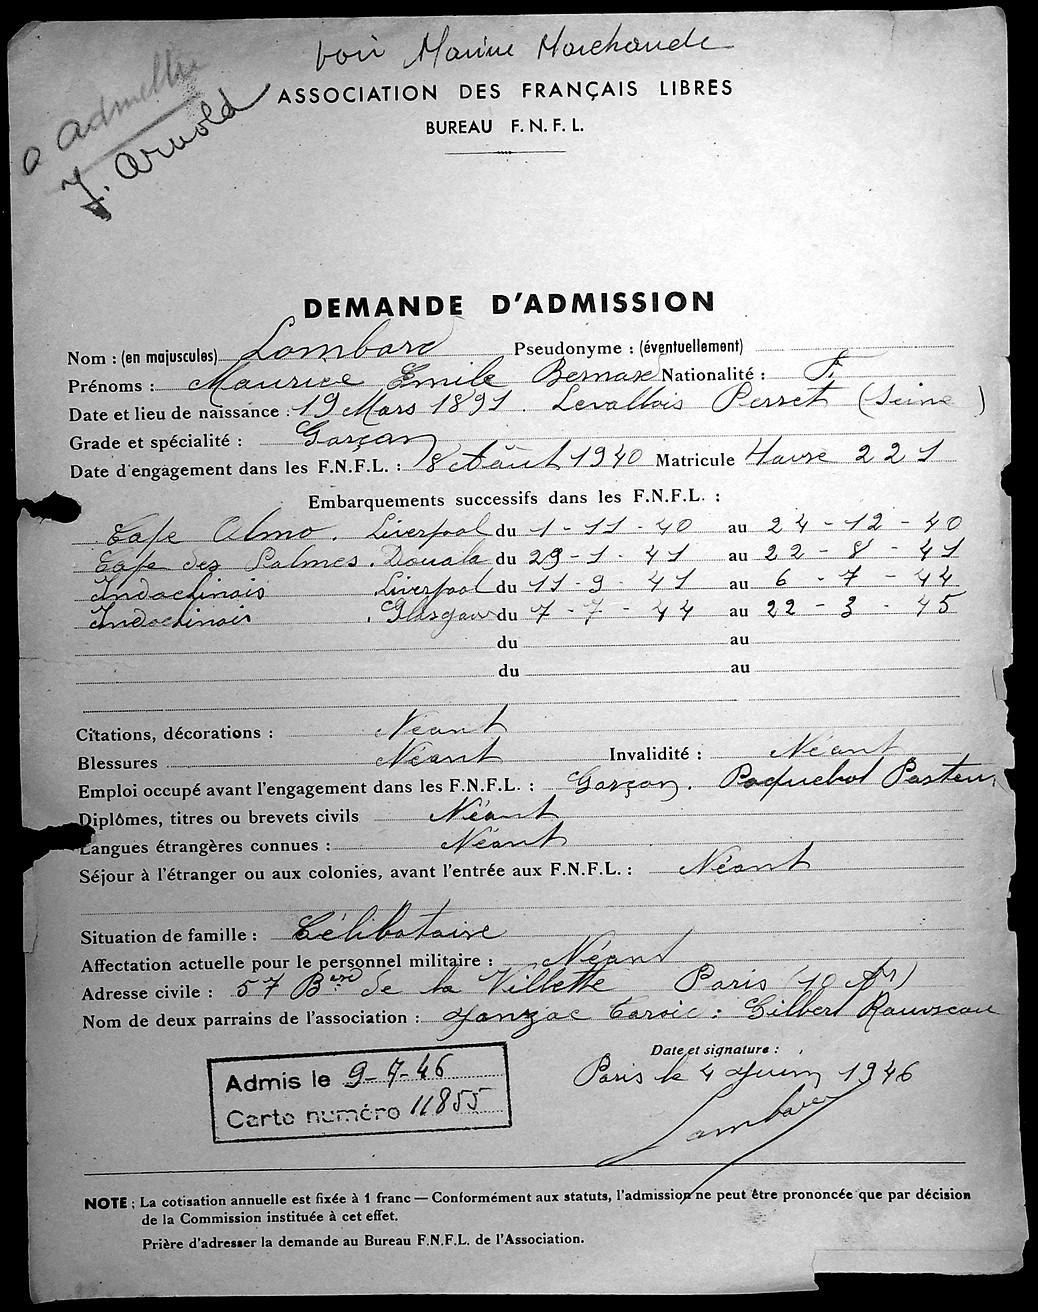 voir Marine Marchande
a admettre
J. Arnold
ASSOCIATION DES FRANÇAIS LIBRES
BUREAU F. N. F. L.
DEMANDE D'ADMISSION
Nom : (en majuscules) Lombard Pseudonyme : (éventuellement)
Prénoms : Maurice Emile Bernard Nationalité : F.
Date et lieu de naissance : 19 Mars 1891. Levallois Perret (Seine)
Grade et spécialité : Garçon
Date d'engagement dans les F.N.F.L. : 8 Août 1940 Matricule Havre 221
Embarquements successifs dans les F.N.F.L. :
Cape Olmo. Liverpool du 1-11-40 au 24-12-40
Cap des Palmes. Douala du 29-1-41 au 22-8-41
Indochinois Liverpool du 11-9-41 au 6-7-44
Indochinois. Glasgow du 7-7-44 au 22-3-45
du au
du au
Citations, décorations : Néant
Blessures Néant Invalidité : Néant
Emploi occupé avant l'engagement dans les F.N.F.L. : Garçon. Paquebot Pasteur
Diplômes, titres ou brevets civils Néant
Langues étrangères connues : Néant
Séjour à l'étranger ou aux colonies, avant l'entrée aux F.N.F.L. : Néant
Situation de famille : Célibataire
Affectation actuelle pour le personnel militaire : Néant
Adresse civile : 57 Bvrd de la Villette Paris (10 Ar)
Nom de deux parrains de l'association : : Gilbert
Date et signature :
Admis le 9-7-46
Paris le 4 Juin 1946
Carte numéro 11855
Lombard
NOTE : La cotisation annuelle est fixée à 1 franc — Conformément aux statuts, l'admission ne peut être prononcée que par décision
de la Commission instituée à cet effet.
Prière d'adresser la demande au Bureau F.N.F.L. de l'Association.